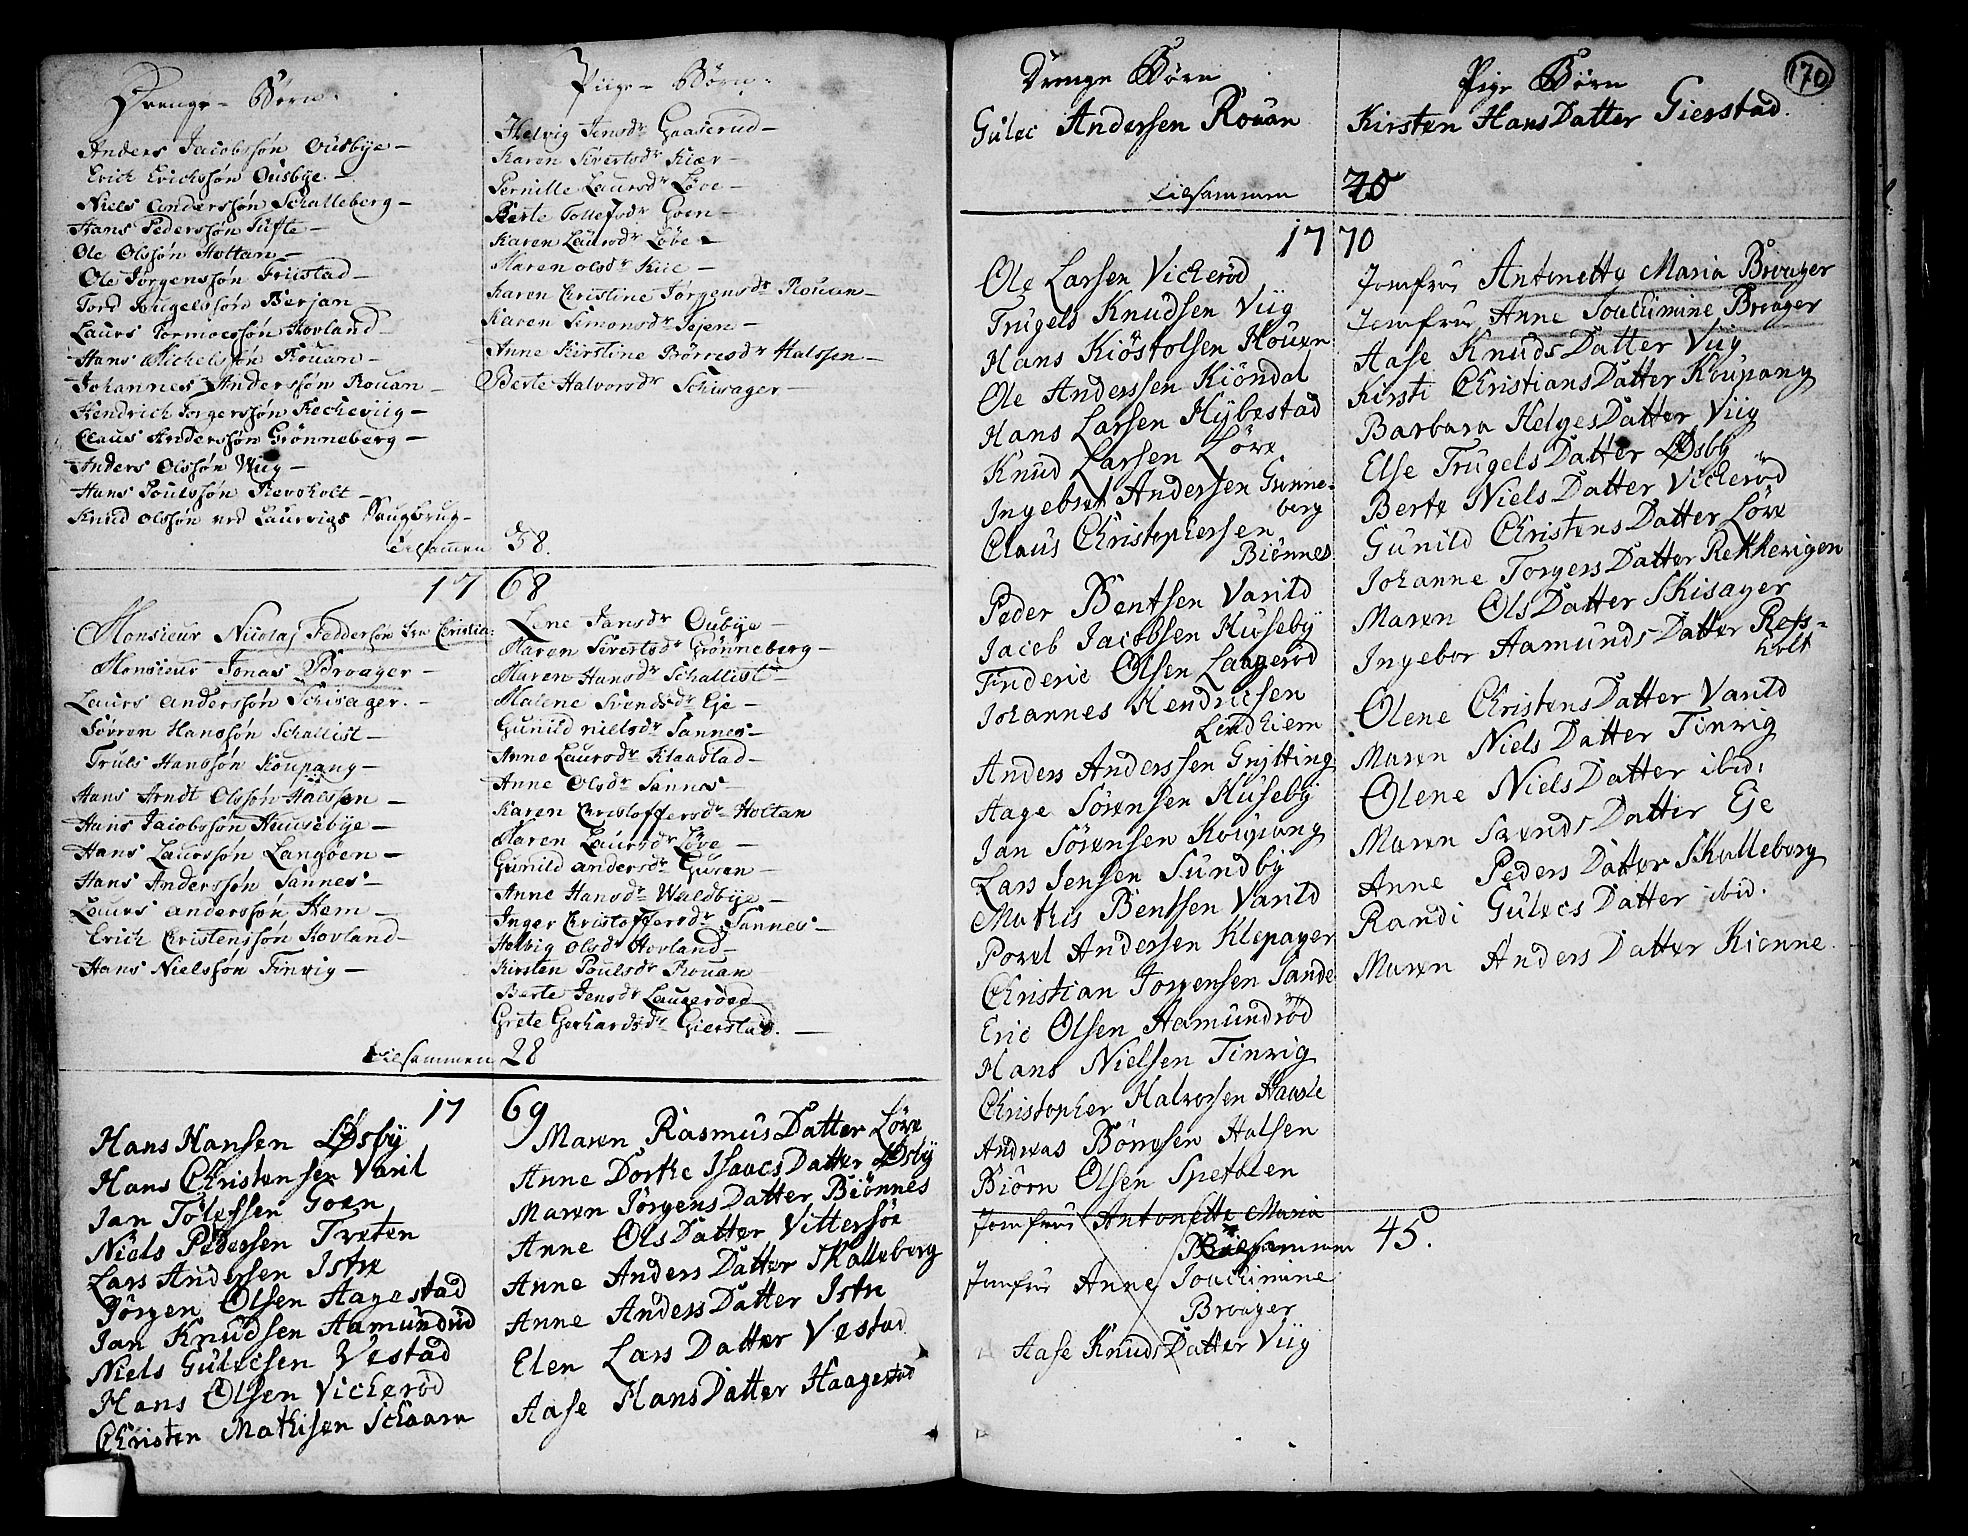 Drenge - Børn.
Anders Jacobssøn Ousbye -
Erich Erichssøn Ousbye -
Niels Anderssøn Schalleberg -
Hans Pederssøn Tufte -
Ole Olssøn Holtan -
Ole Jørgenssøn Friistad -
Tord Engelssøn Berjan -
Laurs Tormoessøn Hovland -
Hans Michelssøn Rouan -
Johannes Anderssøn Rouan -
Hendrich Torgerssøn Recheviig -
Claus Anderssøn Grønneberg -
Anders Olssøn Wiig -
Hans Poulssøn Revoholt -
Knud Olssøn ved Laurvigs Saugbrug -
Piige - Børn.
Helvig Jensdr Gaaserud -
Karen Sivertsdr Kiær -
Pernille Laursdr Løve -
Berte Tollefsdr Goen -
Karen Laursdr Løve -
Maren Olsdr Kiie -
Karen Christine Jørgensdr Rouan -
Karen Simonsdr Jejen -
Anne Kirstine Børresdr Halssen -
Berte Halvorsdr Schisager -
tilsamen 38.
1768
Monsieur Nicolaj Feddersøn fra Christia:
Monsieur Jonas Broager -
Laurs Anderssøn Schisager. -
Søvren Hanssøn Schallist -
Truls Hanssøn Koupang -
Hans Arndt Olssøn Halssen -
Hans Jacobssøn Huusebye -
Hans Laurssøn Langøen -
Hans Anderssøn Sannes -
Laurs Anderssøn Hem -
Erich Christenssøn Hovland -
Hans Nielssøn Tinvig -
Lene Jansdr Oubye -
Maren Sivertsdr Grønneberg -
Maren Hansdr Schallist -
Malene Svendsdr Eje -
Gunild nielsdr Sannes -
Anne Laursdr Klaastad -
Anne Olsdr Sannes -
Karen Christoffersdr Holtan
Maren Laursdr Løve -
Gunild Andersdr Guren -
Anne Hansdr Waldbye -
Inger Christoffersdr Sannes -
Helvig Olsdr Hovland -
Kirsten Poulsdr Rouan -
Berte Jensdr Laugerøed
Grete Gerhardsdr Gierstad. -
tilsammen 28
1769
Hans Hansen Øsby
Hans Christensen Varil
Jan Tolefsen Goen
Niels Pedersen Treten
Lars Andersen Istre
Jørgen Olsen Hagestad
Jan Knudsen Aamundrud
Niels Gulecsen Vestad
Hans Olsen Vicherød
Christen Mathisen Schaarn
Maren Rasmus Datter Løve
Anne Dorthe Isaacs Datter Øsby
Maren Jørgens Datter Biønnes
Anne Ols Datter Vittersøe
Anne Anders Datter Skalleberg
Anne Anders Datter Istre
Elen Lars Datter Vestad
Aase Hans Datter Haagestad
170
Drenge Børn
Gulec Andersen Rouan
Pige Børn
Kirsten Hans Datter Gierstad.
tilsammen 20
1770
Ole Larsen Vicherød
Trugels Knudsen Viig
Hans Kiøstolsen Houen
Ole Anderssen Kiøndal
Hans Larsen Hybestad
Knud Larsen Løve
Ingebret Andersen Grønne-
berg
Claus Christophersen
Biønnes
Peder Bentsen Varild
Jacob Jacobsen Huseby
Frideric Olsen Laagerød
Johannes Hendricsen
Lindhiem
Anders Anderssen Grytting
Aage Sørensen Huseby
Jan Sørensen Koupang
Lars Jensen Sundby
Mathis Bentsen Varild
Povel Andersen Klepager
Christian Jørgensen Sande
Eric Olsen Aamundrød
Hans Nielsen Tinvig
Christopher Halvorsen Haavle
Andreas Børresen Halsen
Biørn Olsen Spetalen
Jomfrue Antonette Maria
Jomfrue Anne Joachimine
Broager
Aase Knuds Datter Viig
Jomfrue Antonette Maria Broager
Jomfrue Anne Joachimine Broager
Aase Knuds Datter Viig
Kirsti Christians Datter Koupang
Barbara Helges Datter Viig
Else Trugels Datter Øsby
Berte Niels Datter Vicherød
Gunild Christens Datter Løve
Johanne Torgers Datter Rekkevigen
Maren Ols Datter Skisager
Ingebor Aamunds Datter Refs-
holt
Olene Christens Datter Varild
Maren Niels Datter Tinvig
Olene Niels Datter ibid:
Maren Svends Datter Eje
Anne Peders Datter Skalleberg
Randi Gulecs Datter ibid.
Maren Anders Datter Kienne.
tilsammen 45.